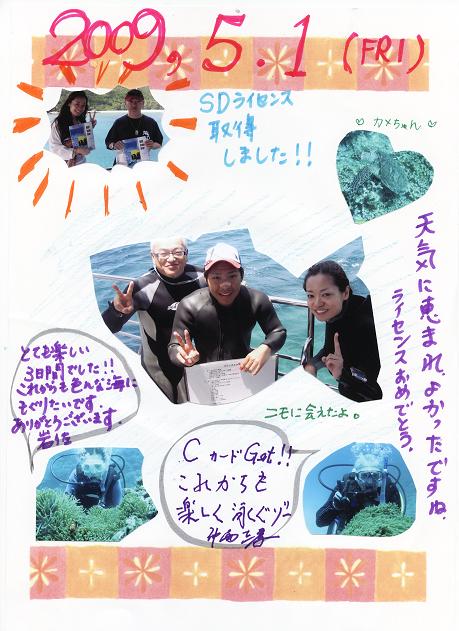 2009. 5. 1 (FRI)
SDライセンス
取得
しました!!
カメちゃん
天気に恵まれ、よかったですね。
ライセンスおめでとう。
とても楽しい
3日間でした!!
これからも色んな海に
もぐりたいです
ありがとうございます。
ニモに会えたよ。
Cカード Get!!
これからも
楽しく泳ぐゾー